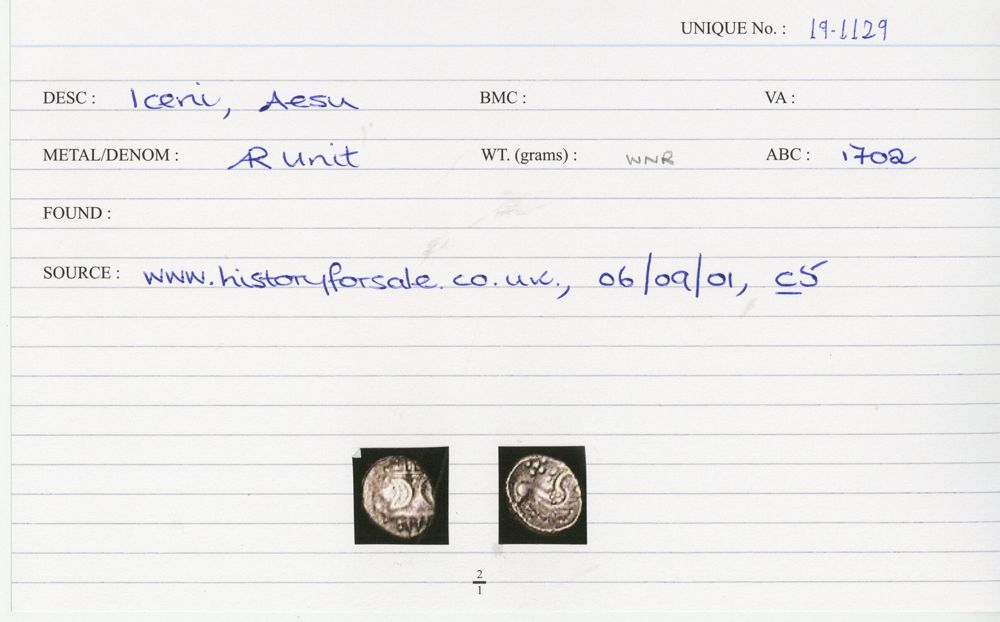 UNIQUE No. : 19-1129
DESC : Iceni, Aesu BMC : VA :
METAL/DENOM : AR Unit WT. (grams) : WNR ABC : 1702
FOUND :
SOURCE : www.historyforsale.co.uk., 06/09/01, C5
2
1